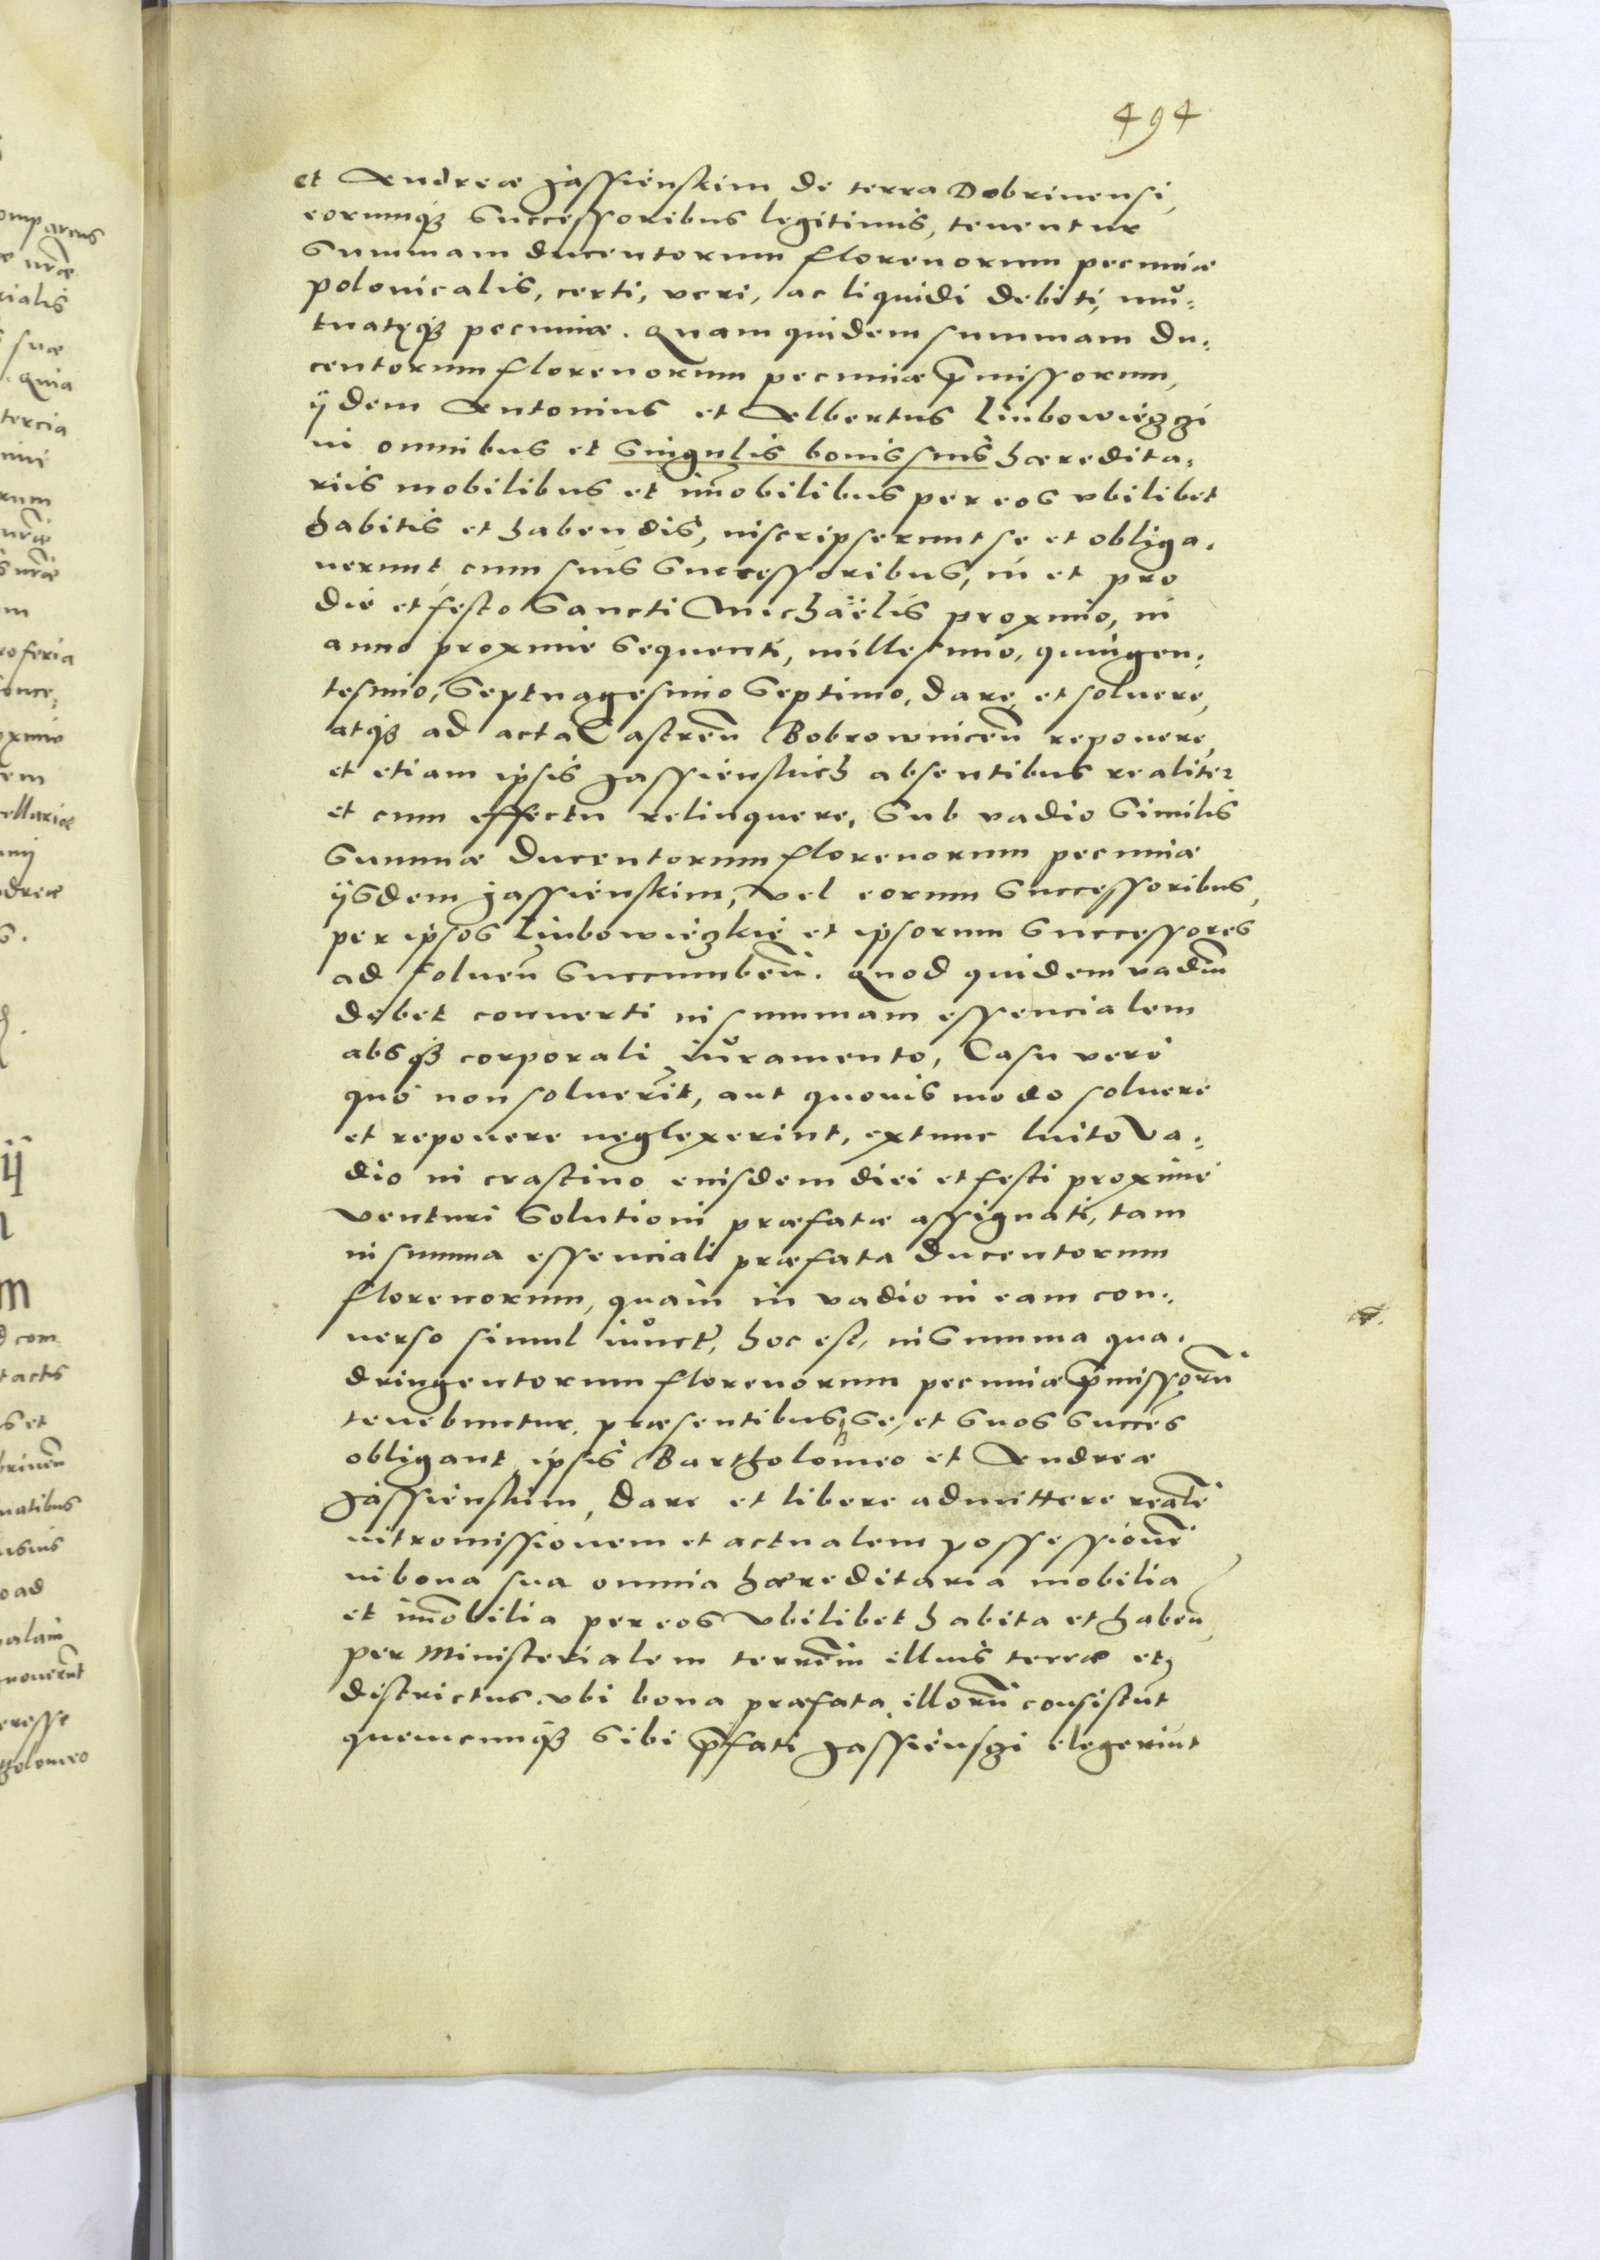 494
et Andreæ Jassienskim de terra Dobrinensi,
eorumq₃ Successoribus legitimis, tenentur
Summam ducentorum florenorum pecuniæ
polonicalis, certi, veri, ac liquidi debiti, mu-
tuatęq₃ pecuniæ. Quam quidem summam du-
centorum florenorum pecuniæ p̄missorum,
ÿdem Antonius et Albertus Liubowieczgi
in omnibus et Singulis bonis suis hæredita-
riis mobilibus et im̄obilibus per eos vbilibet
habitis et habendis, inscripserunt se et obliga-
uerunt cum suis Successoribus, in et pro
die et festo Sancti Michaëlis proximo, in
anno proxime Sequenti, millesimo, quingen-
tesimo, Septuagesimo Septimo, dare et soluere,
atq₃ ad acta Castren̄ Bobrownicen̄ reponere,
et etiam ipsis Jassienskich absentibus realiter
et cum effectu relinquere, Sub vadio Similis
Summæ Ducentorum florenorum pecuniæ
ÿsdem Jassienskim, vel eorum Successoribus,
per ipsos Liubowiezkie et ipsorum Successores
ad soluen̄ Succumben̄. Quod quidem vadiū
debet conuerti in summam essencialem
absq₃ corporali iuramento, Casu vero
quo non soluerīt, aut quouis modo soluere
et reponere neglexerint, extunc luito va-
dio in crastino eiusdem diei et festi proxime
venturi Solutioni præfatæ assignati, tam
in summa essenciali præfata Ducentorum
florenorum, quam in vadio in eam con-
uerso simul iunct̄, hoc est, in Summa qua-
dringentorum florenorum pecuniæ p̄missorū
tenebuntur, præsentibusq₃ Se, et Suos Succes̄
obligant ipsis Bartholomeo et Andreæ
Jassienskim, dare et libere admittere realē
intromissionem et actualem possessionē
in bona sua omnia hæreditaria mobilia
et im̄obilia per eos vbilibet habita et haben̄
per Ministerialem terrēm illius terræ et
districtus vbi bona præfata illorū consistūt
quemcunq₃ Sibi p̄fati Jassiensgi elegerint